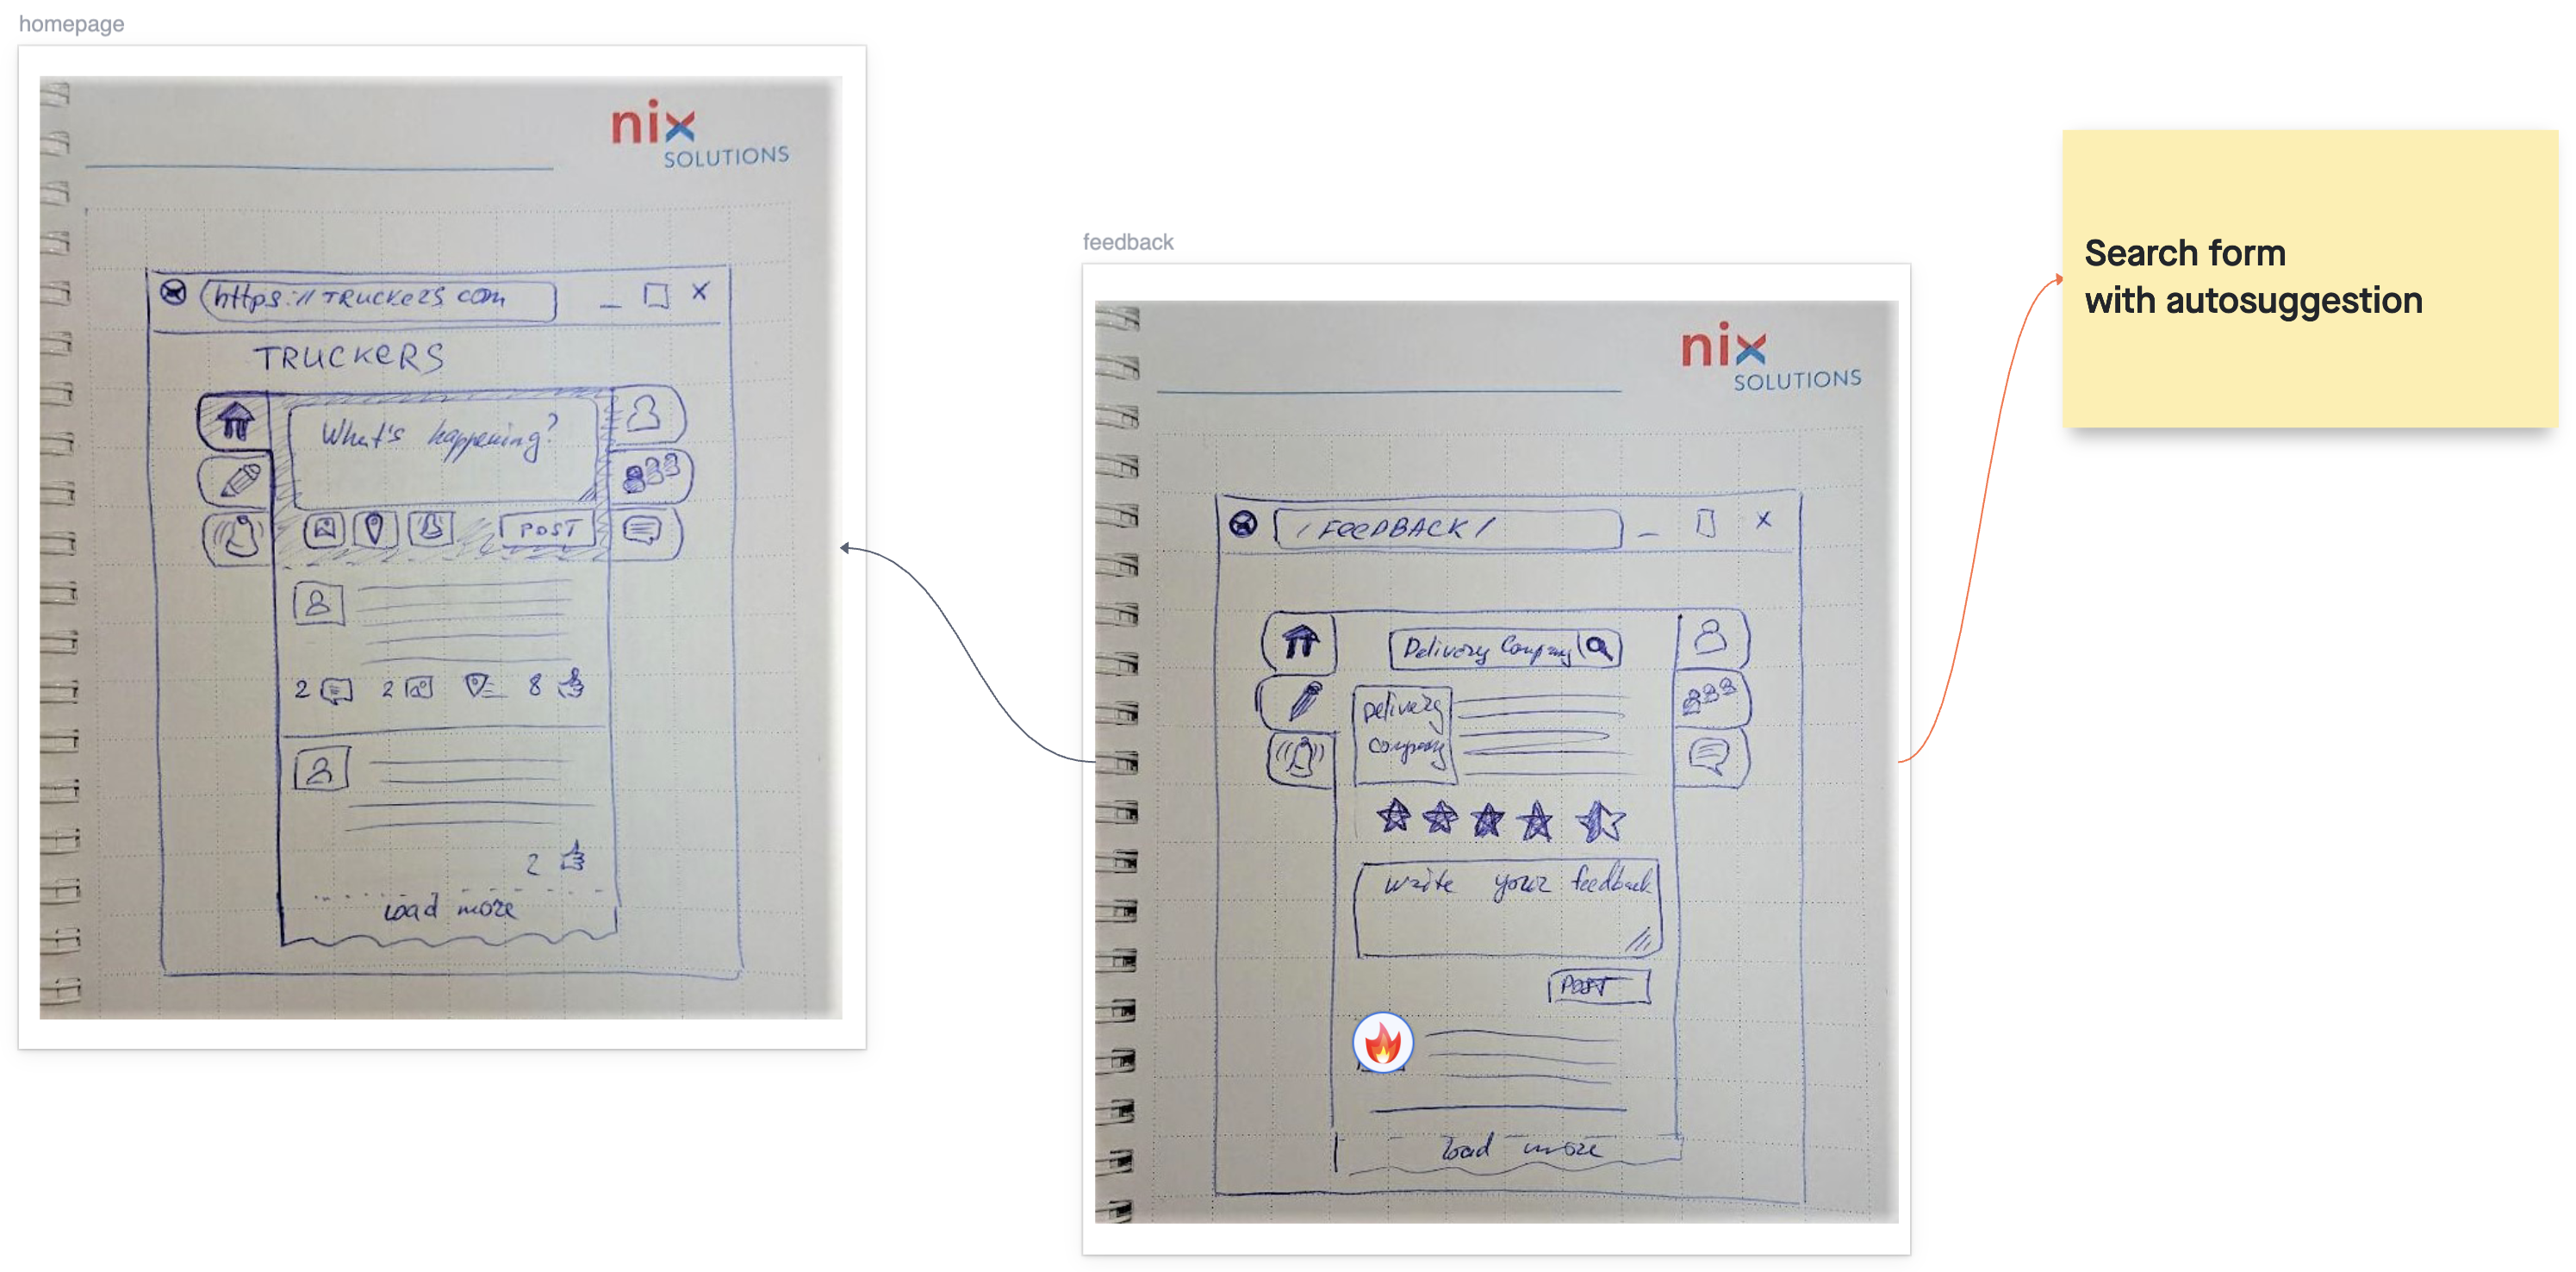 homepage
nix
SOLUTIONS
https://TRUCKERS com
TRUCKERS
What's happening?
POST
2 2 8
2
load more
feedback
nix
SOLUTIONS
/ FEEDBACK /
Delivery Company
Delivery
company
write your feedback
POST
load more
Search form
with autosuggestion